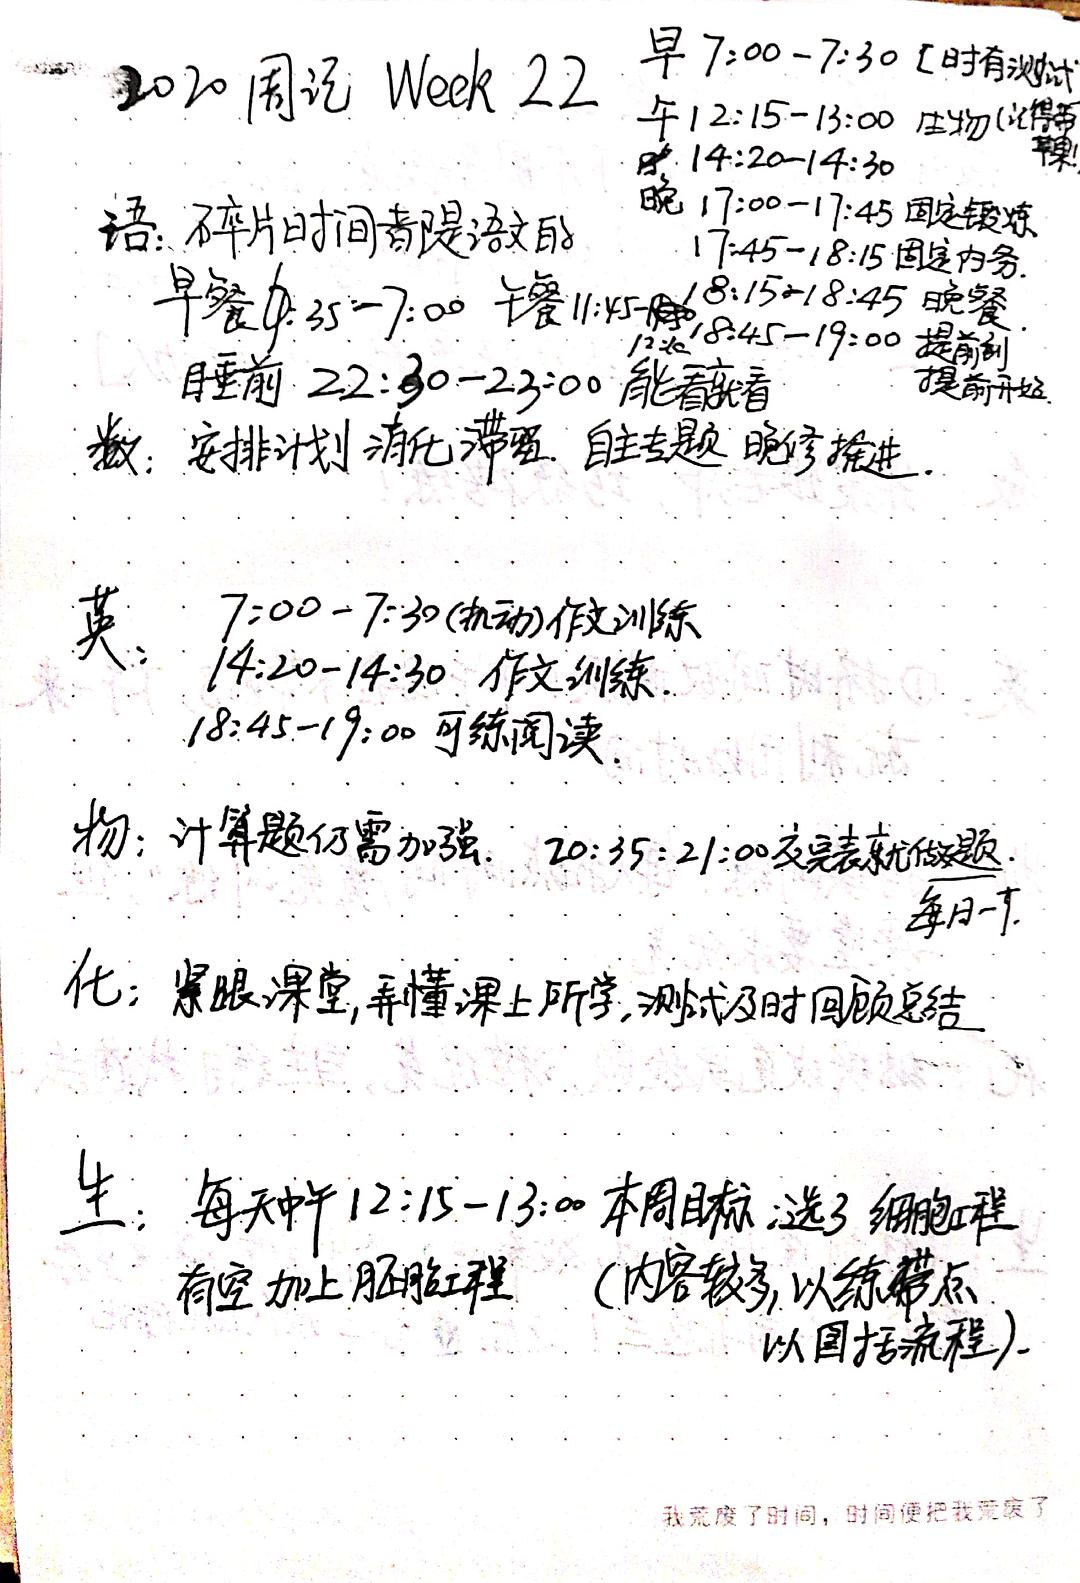 2020 周记 Week 22
早 7:00-7:30 [时有测试
午 12:15-13:00 生物(记得带苹果!
14:20-14:30
晚 17:00-17:45 固定锻炼
17:45-18:15 固定内务.
18:15-18:45 晚餐.
18:45-19:00 提前到
提前开始.
语: 碎片时间都是语文的
早餐 6:35-7:00 午餐 11:45-
睡前 22:30-23:00 能看就看
数: 安排计划 消化滞留. 自主专题 晚修推进.
英: 7:00-7:30(机动)作文训练
14:20-14:30 作文训练.
18:45-19:00 可练阅读.
物: 计算题仍需加强. 20:35:21:00交完表就做题.
每日一
化: 紧跟课堂,弄懂课上所学,测试及时回顾总结
生: 每天中午12:15-13:00 本周目标:选3 细胞工程
有空加上胚胎工程 (内容较多,以练带点
以图括流程).
我荒废了时间，时间便把我荒废了